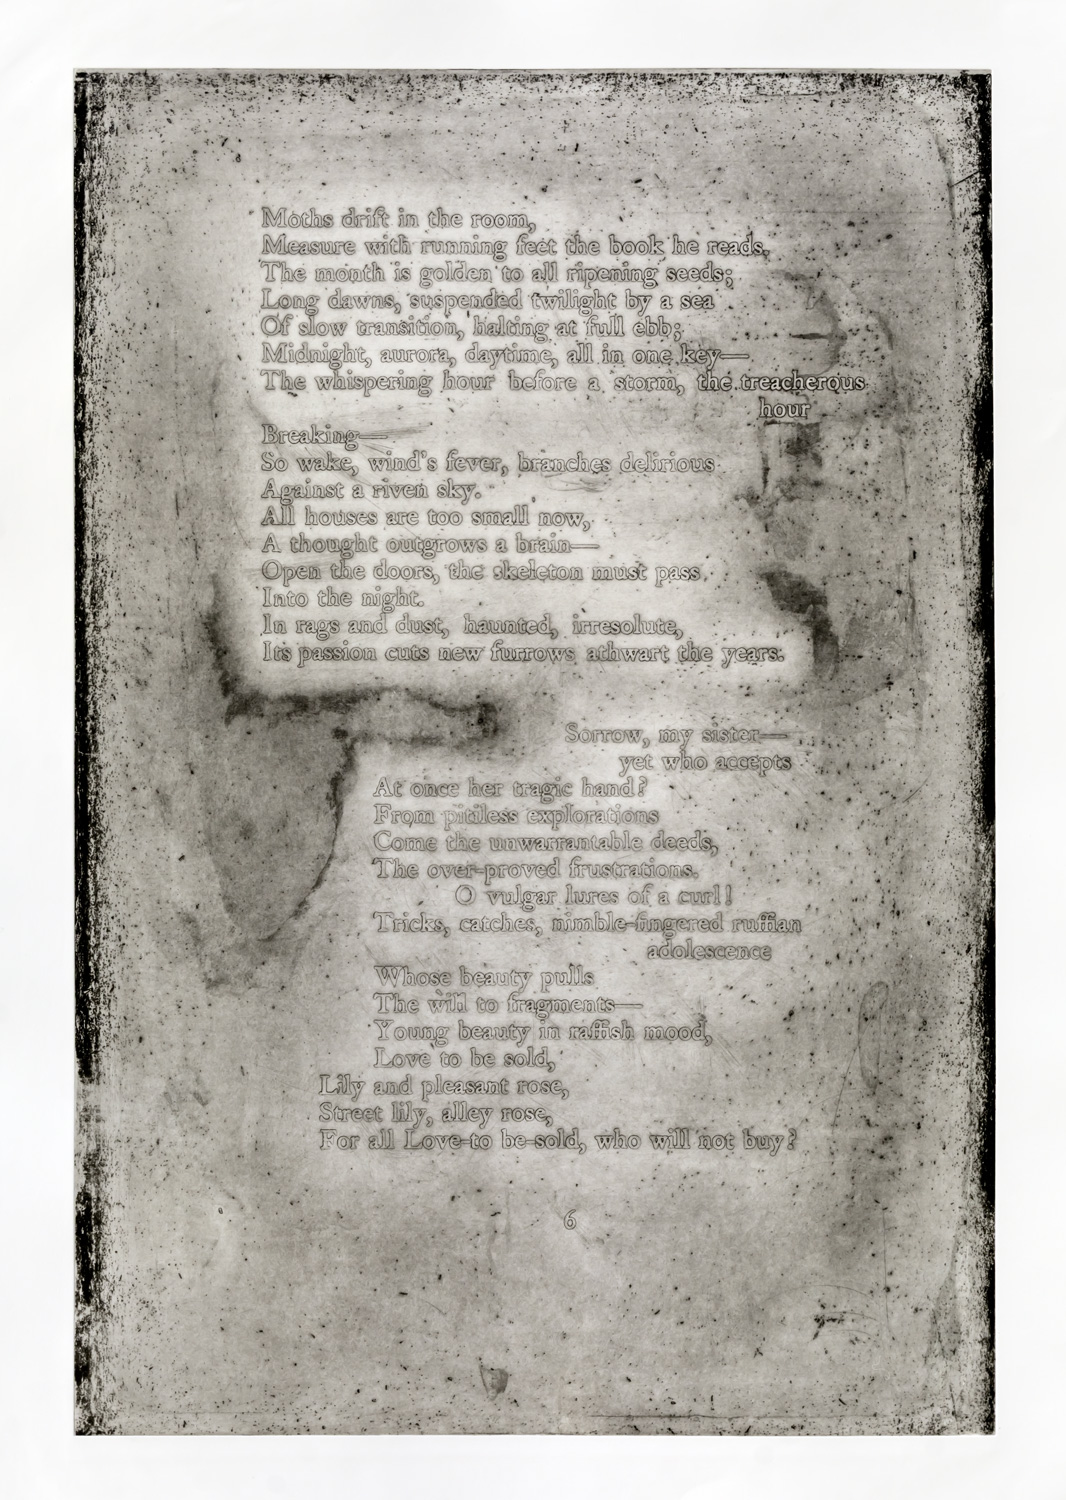 Moths drift in the room,
Measure with running feet the book he reads.
The month is golden to all ripening seeds;
Long dawns, suspended twilight by a sea
Of slow transition, halting at full ebb;
Midnight, aurora, daytime, all in one key—
The whispering hour before a storm, the treacherous
hour
Breaking—
So wake, wind's fever, branches delirious
Against a riven sky.
All houses are too small now,
A thought outgrows a brain—
Open the doors, the skeleton must pass
Into the night.
In rags and dust, haunted, irresolute,
Its passion cuts new furrows athwart the years.
Sorrow, my sister—
yet who accepts
At once her tragic hand?
From pitiless explorations
Come the unwarrantable deeds,
The over-proved frustrations.
O vulgar lures of a curl!
Tricks, catches, nimble-fingered ruffian
adolescence
Whose beauty pulls
The will to fragments—
Young beauty in raffish mood,
Love to be sold,
Lily and pleasant rose,
Street lily, alley rose,
For all Love-to be-sold, who will not buy?
6